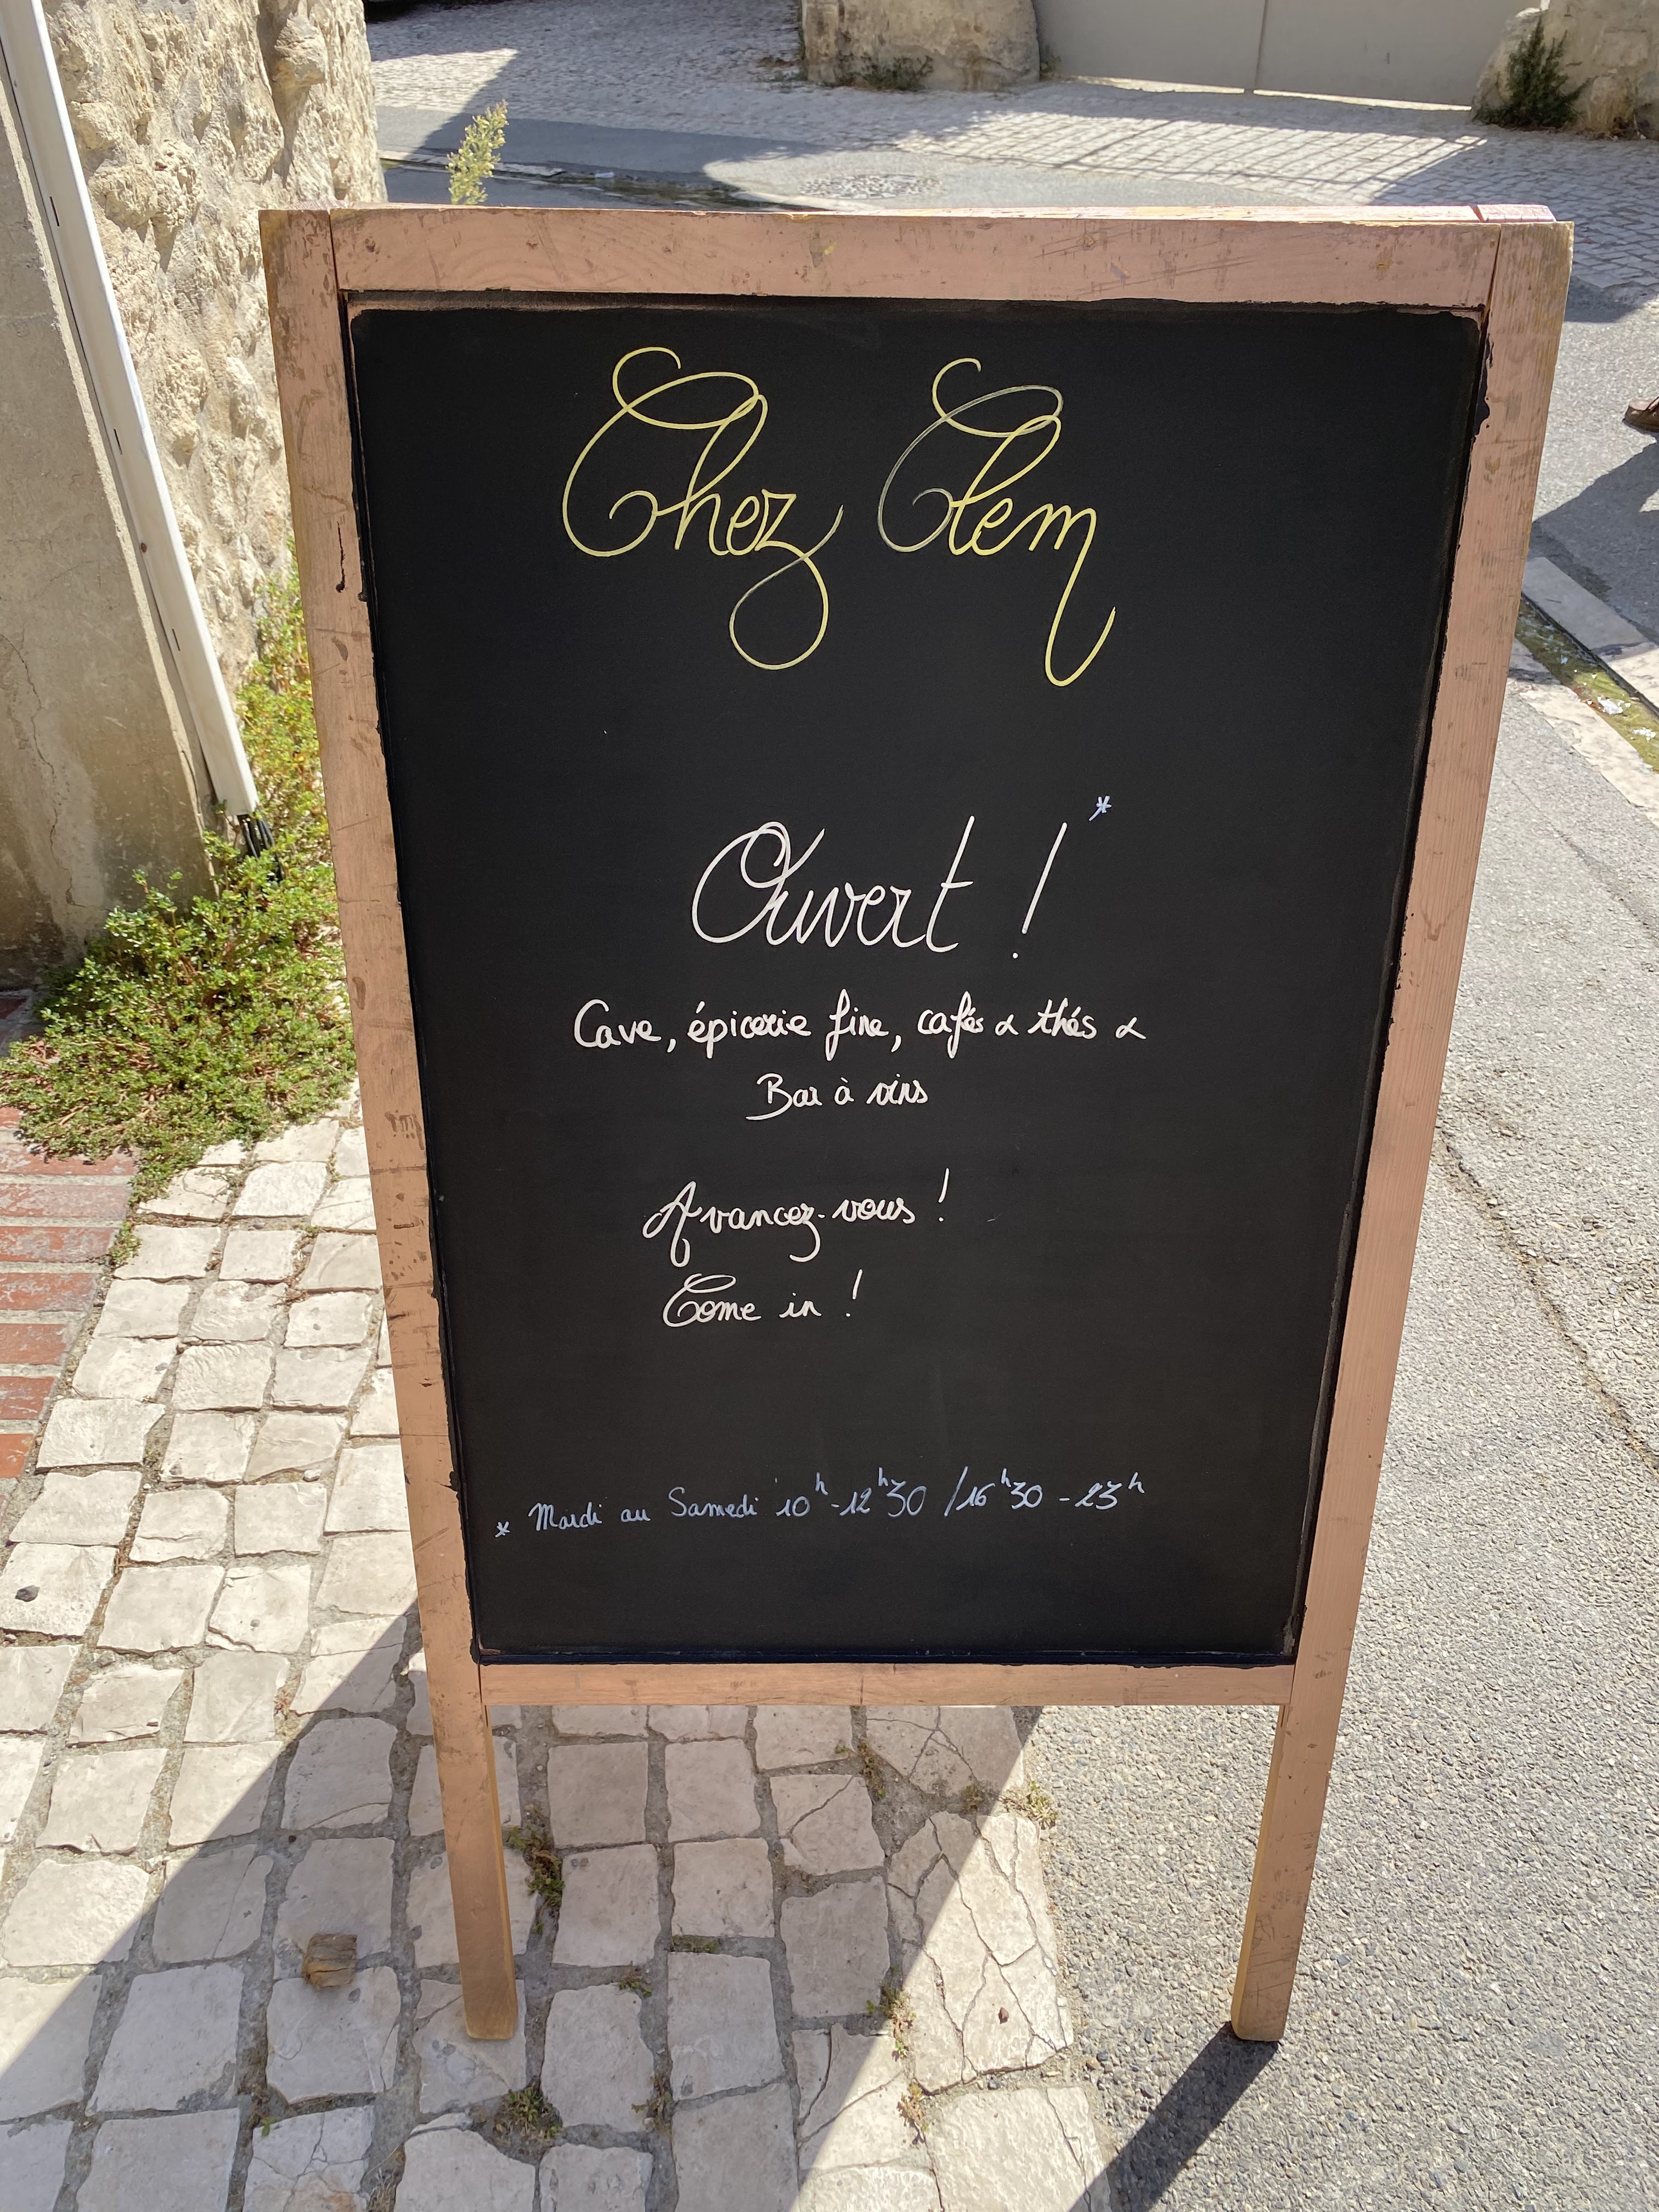 Chez Clem
Ouvert ! *
Cave, épicerie fine, cafés & thés &
Bar à vins
Avancez-vous !
Come in !
* Mardi au Samedi 10h-12h30 / 16h30 - 23h